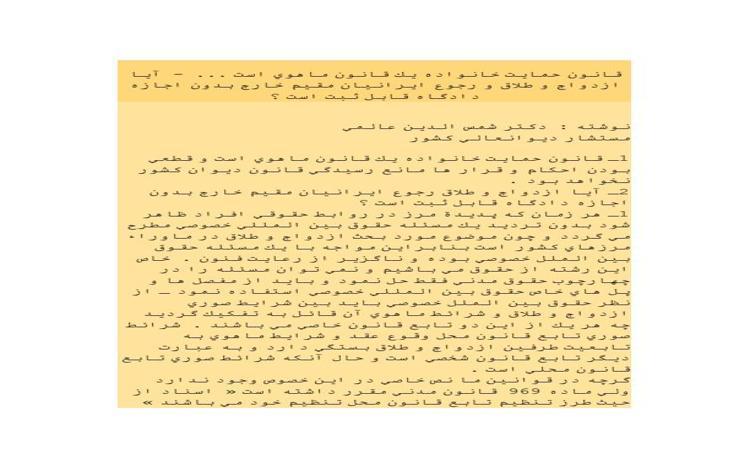 قانون حمايت خانواده يك قانون ماهوي است ... – آيا
ازدواج و طلاق و رجوع ايرانيان مقيم خارج بدون اجازه
دادگاه قابل ثبت است ؟
نوشته : دكتر شمس الدين عالمي
مستشار ديوانعالي كشور
1ـ قانون حمايت خانواده يك قانون ماهوي است و قطعي
بودن احكام و قرار ها مانع رسيدگي قانون ديوان كشور
نخواهد بود .
2ـ آيا ازدواج و طلاق رجوع ايرانيان مقيم خارج بدون
اجازه دادگاه قابل ثبت است ؟
1ـ هر زمان كه پديدة مرز در روابط حقوقي افراد ظاهر
شود بدون ترديد يك مسئله حقوق بين المللي خصوصي مطرح
مي گردد و چون موضوع مورد بحث ازدواج و طلاق در ماوراء
مرزهاي كشور است بنابراين مواجه با يك مسئله حقوق
بين الملل خصوصي بوده و ناگزير از رعايت فنون . خاص
اين رشته از حقوق مي باشيم و نمي توان مسئله را در
چهارچوب حقوق مدني فقط حل نمود و بايد از مفصل ها و
پل هاي خاص حقوق بين المللي خصوصي استفاده نمود ـ از
نظر حقوق بين الملل خصوصي بايد بين شرايط صوري
ازدواج و طلاق و شرائط ماهوي آن قائل به تفكيك گرديد
چه هر يك از اين دو تابع قانون خاصي مي باشند . شرائط
صوري تابع قانون محل وقوع عقد و شرايط ماهوي به
تابعيت طرفين ازدواج و طلاق بستگي دارد و به عبارت
ديگر تابع قانون شخصي است و حال آنكه شرائط صوري تابع
قانون محلي است .
گرچه در قوانين ما نص خاصي در اين خصوص وجود ندارد
ولي ماده 969 قانون مدني مقرر داشته است « اسناد از
حيث طرز تنظيم تابع قانون محل تنظيم خود مي باشند »